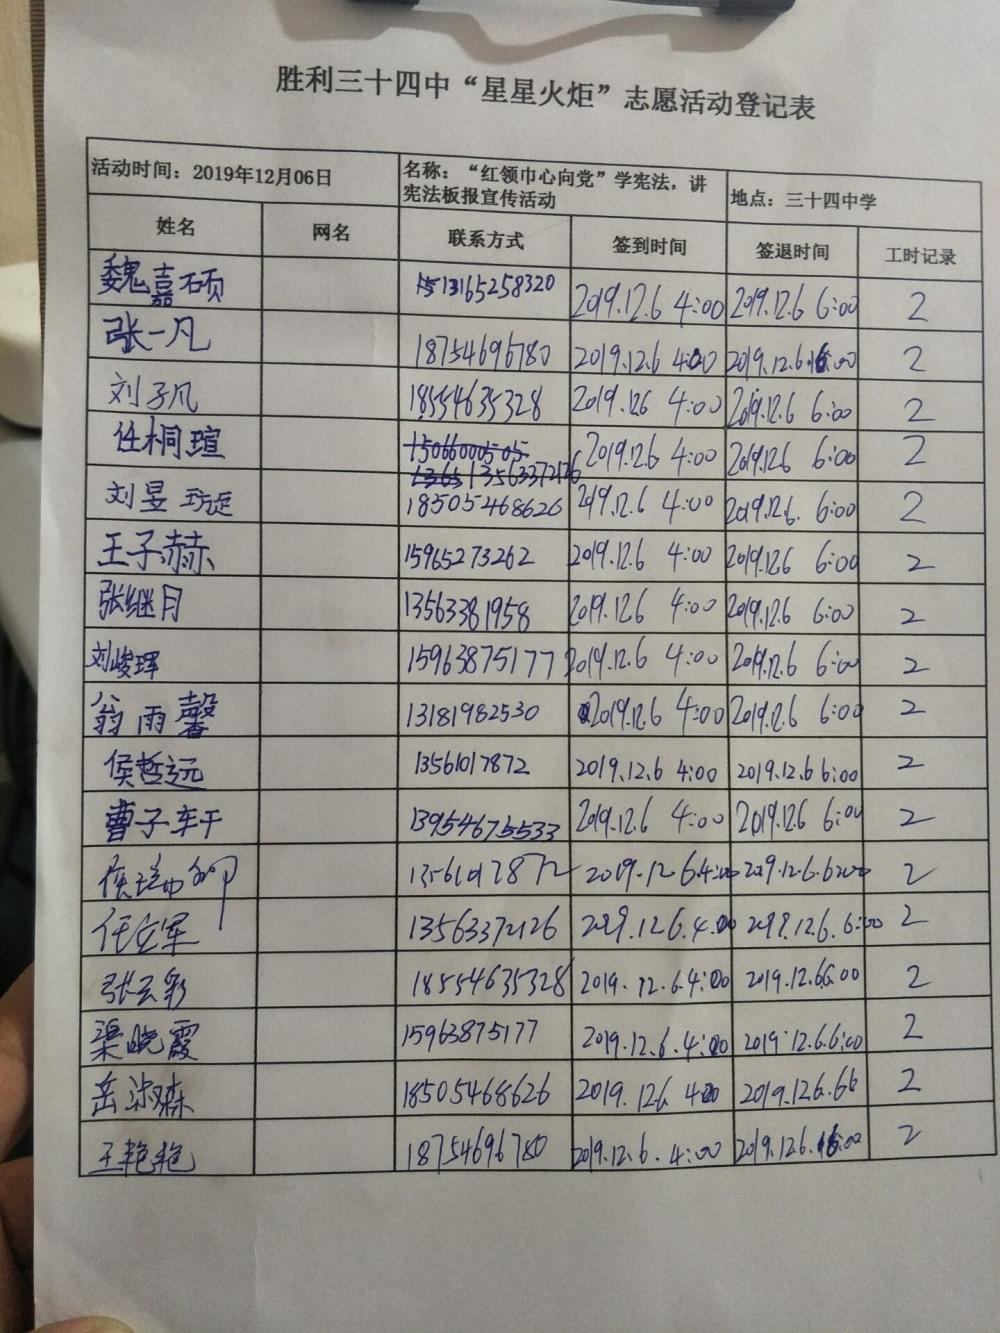 胜利三十四中“星星火炬”志愿活动登记表
活动时间：2019年12月06日 名称：“红领巾心向党”学宪法，讲宪法板报宣传活动 地点：三十四中学
姓名 网名 联系方式 签到时间 签退时间 工时记录
魏嘉硕 13165258320 2019.12.6 4:00 2019.12.6 6:00 2
张一凡 18754696780 2019.12.6 4:00 2019.12.6 6:00 2
刘子凡 18554635328 2019.12.6 4:00 2019.12.6 6:00 2
任桐瑄 15066000505 2019.12.6 4:00 2019.12.6 6:00 2
1365 13563372126
刘昱 18505468626 2019.12.6 4:00 2019.12.6. 6:00 2
王子赫 15965273262 2019.12.6 4:00 2019.12.6 6:00 2
张继月 13563381958 2019.12.6 4:00 2019.12.6 6:00 2
刘峻珲 15963875177 2019.12.6 4:00 2019.12.6 6:00 2
翁雨馨 13181982530 2019.12.6 4:00 2019.12.6 6:00 2
侯哲远 13561017872 2019.12.6 4:00 2019.12.6 6:00 2
曹子轩 13954675533 2019.12.6 4:00 2019.12.6 6:00 2
侯 13561017872 2019.12.6.4:00 2019.12.6.6:00 2
任立军 13563372126 2019.12.6.4:00 2019.12.6.6:00 2
张云彩 18554635328 2019.12.6.4:00 2019.12.6 6:00 2
渠晓霞 15963875177 2019.12.6.4:00 2019.12.6.6:00 2
岳淑森 18505468626 2019.12.6 4:00 2019.12.6. 2
王艳艳 18754696780 2019.12.6.4:00 2019.12.6.6:00 2